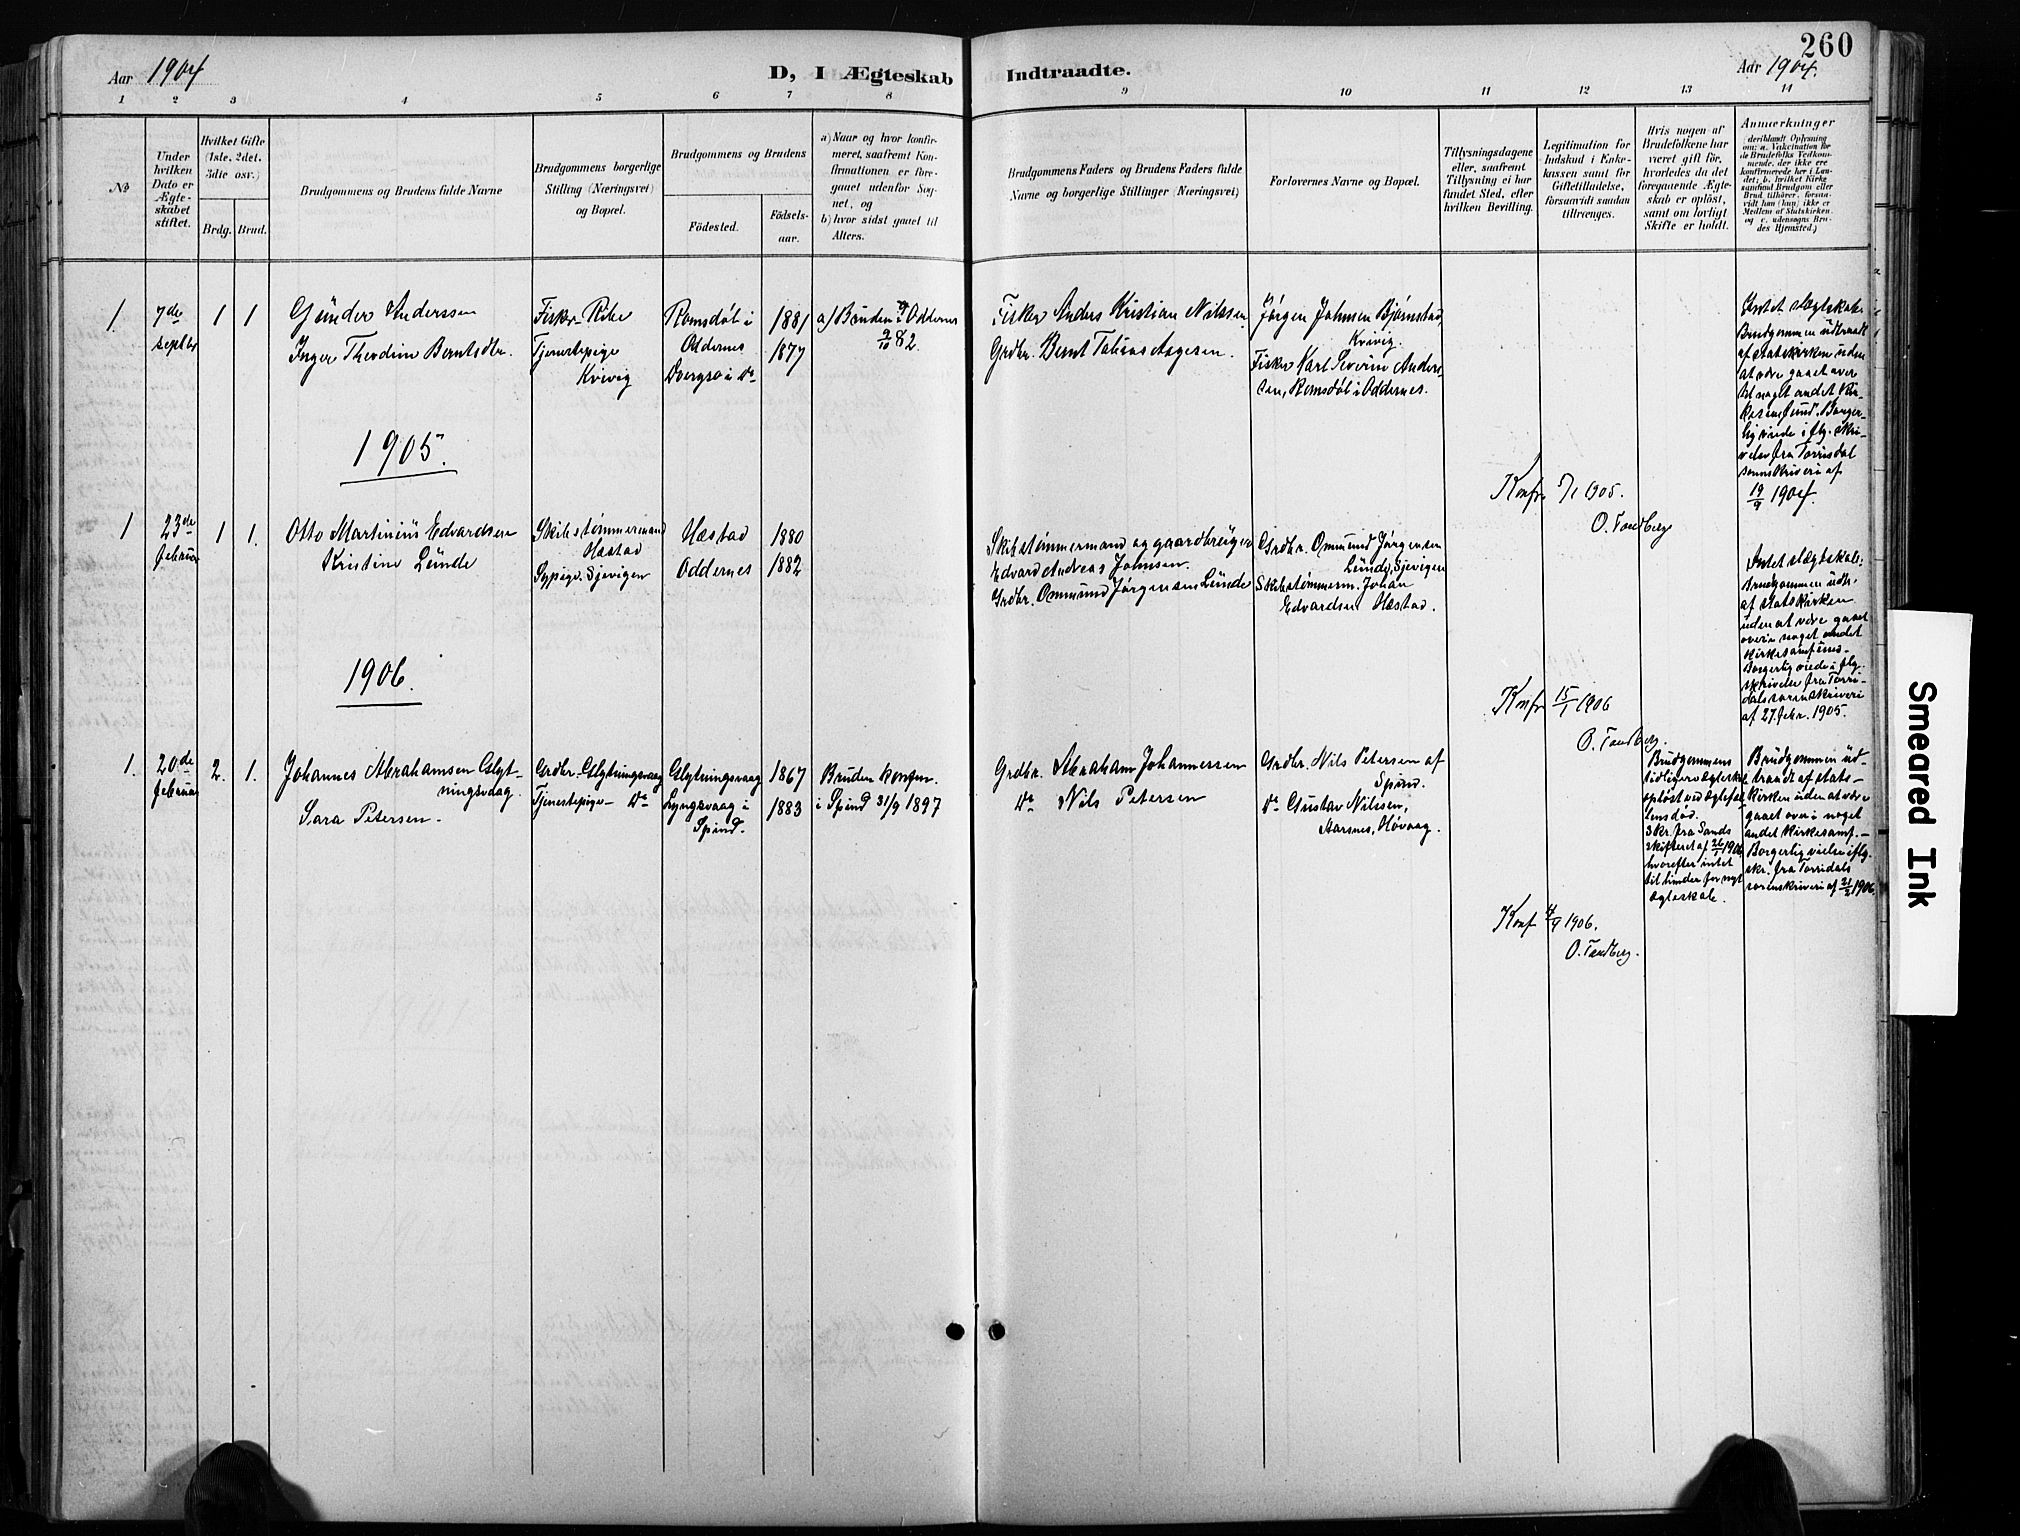 260
Aar 1904
D, I Ægteskab
Indtraadte.
Aar 1904.
1 2 3 4 5 6 7 8 9 10 11 12 13 14
No
Under
hvilken
Dato er
Ægte-
skabet
stiftet.
Hvilket Gifte
(1ste, 2det,
3die osv.)
Brdg.
Brud.
Brudgommens og Brudens fulde Navne
Brudgommens borgerlige
Stilling (Næringsvei)
og Bopæl.
Brudgommens og Brudens
Fødested.
Fødsels-
aar.
a) Naar og hvor konfir-
meret, saafremt Kon-
firmationen er fore-
gaaet udenfor Sog-
net, og
b) hvor sidst gaaet til
Alters.
Brudgommens Faders og Brudens Faders fulde
Navne og borgerlige Stillinger (Næringsvei)
Forlovernes Navne og Bopæl.
Tillysningsdagene
eller, saafremt
Tillysning ei har
fundet Sted, efter
hvilken Bevilling.
Legitimation for
Indskud i Enke-
kassen samt for
Giftetilladelse,
forsaavidt saadan
tiltrænges.
Hvis nogen af
Brudefolkene har
været gift før,
hvorledes da det
foregaaende Ægte-
skab er opløst,
samt om lovligt
Skifte er holdt.
Anmærkninger
(deriblandt Oplysning
om: a. Vakcination for
de Brudefolks Vedkom-
mende, der ikke ere
konfirmerede her i Lan-
det; b. hvilket Kirke-
samfund Brudgom eller
Brud tilhører, forsaa-
vidt han (hun) ikke er
Medlem af Statskirken,
og c. udensogns Bru-
des Hjemsted.)
1.
7de
Septbr
1 1
Günder Anderssen
Inger Theodine Berntsdtr.
Fisker Ribe
Tjenestepige
Kvivig
Romsdøl i
Oddernes
Dvergsø i Do
1881
1877
a) Bruden i Oddernes
9/10 82.
Fisker Anders Kristian Nilssen
Grdbr. Bernt Tobias Aagesen.
Jørgen Johnsen Bjørnstad,
Kvivig.
Fisker Karl Severin Anders-
sen, Romsdøl i Oddernes.
Intet slægtskab.
Brudgommen üdtraadt
af statskirken uden
at være gaaet over
til noget andet Kir-
kesamfund. Borger-
lig viede iflg. Skri-
velse fra Torrisdal
sorenskriveri af
19/9 1904.
1905.
Konfr 5/1 1905.
O. Tandberg
1
23de
februar
1 1.
Otto Martiniüs Edvardsen
Kristine Lünde
Skibstømmermand
Hæstad
Sypige. Sjevigen
Hæstad
Oddernes
1880
1882
Skibstømmermand og gaardbrüger
Edvard Andreas Johnsen.
Grdbr. Ommund Jørgensen Lünde
Grdbr. Ommund Jørgensen
Lünde, Sjevigen
Skibstømmerm. Johan
Edvardsen Hæstad.
Intet slægtskab;
Brudgommen üdtr.
af statskirken
üden at være gaaet
over i noget andet
kirkesamfund.
Borgerlig viede iflg.
skrivelse fra Torri-
dals sorenskriveri
af 27. febr. 1905.
1906.
Konfr 15/1 1906
O. Tandberg.
1.
20de
februar
2. 1.
Johannes Abrahamsen Glyt-
ningsvaag.
Sara Petersen.
Grdbr. Glytningsvaag
Tjenestepige Do
Glytningsvaag
Lyngsvaag i
Spind.
1867
1883
Bruden konfm.
i Spind 31/9 1897
Grdbr. Abraham Johannessen
Do Nils Petersen
Grdbr. Nils Petersen af
Spind.
Do Gustav Nilssen,
Aarsnes, Høvaag.
Brüdgommens
tidligere ægteskab
opløst ved ægtefæl-
lens død.
Skr. fra Sands
skifteret af 26/1 1906,
hvorefter intet
til hinder for nyt
ægteskab.
Brüdgommen üd-
traadt af stats-
kirken uden at være
gaaet over i noget
andet kirkesamf.
Borgerlig vielse iflg.
skr. fra Torridals
sorenskriveri af 21/2 1906.
Konf 4/9 1906.
O. Tandberg.
Smeared Ink